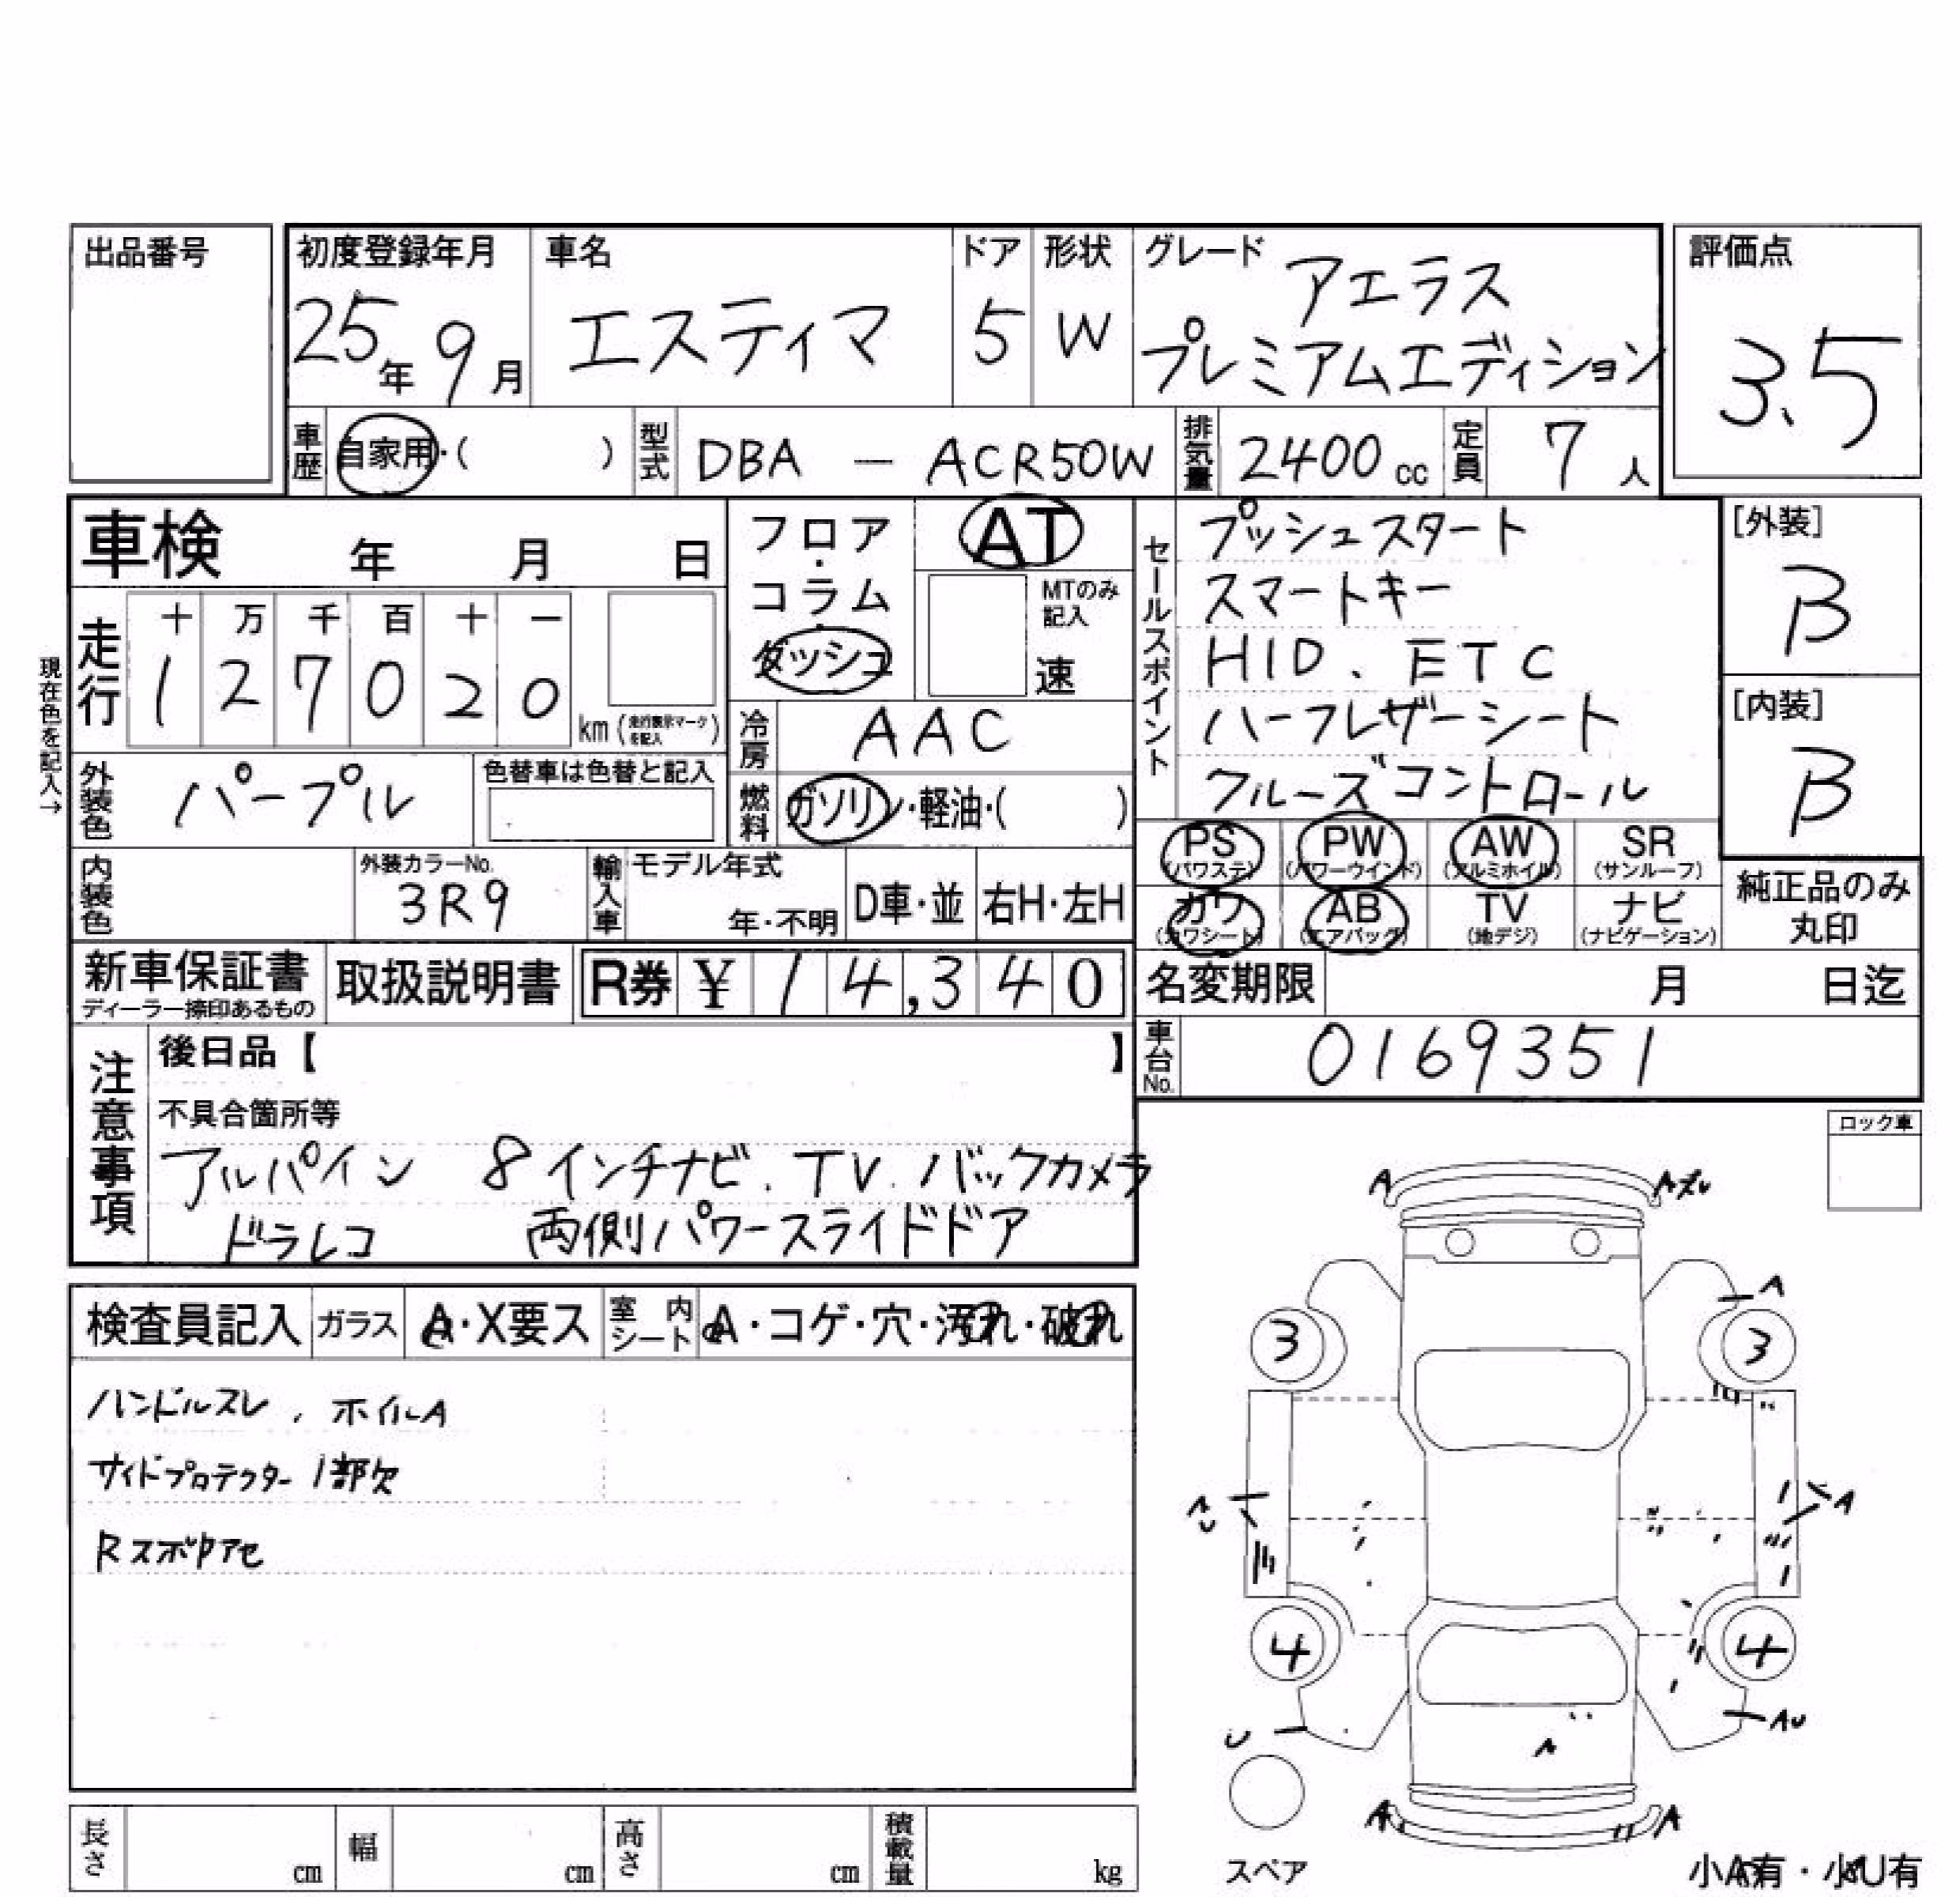 出品番号
初度登録年月 車名 ドア 形状 グレード 評価点
25年 9月 エスティマ 5 W アエラス
プレミアムエディション
3.5
車歴 自家用・( ) 型式 DBA － ACR50W 排気量 2400cc 定員 7人
車検 年 月 日
フロア・コラム・ダッシュ
AT
MTのみ記入
速
現在色を記入→
走行 十 万 千 百 十 一
1 2 7 0 2 0 km (走行表示マークを記入)
冷房 AAC
外装色 パープル 色替車は色替と記入
燃料 ガソリン・軽油・( )
内装色 外装カラーNo. 3R9 輸入車 モデル年式 年・不明 D車・並 右H・左H
セールスポイント
プッシュスタート
スマートキー
HID、ETC
ハーフレザーシート
クルーズコントロール
[外装] B
[内装] B
PS (パワステ) PW (パワーウインド) AW (アルミホイル) SR (サンルーフ)
カワ (カワシート) AB (エアバッグ) TV (地デジ) ナビ (ナビゲーション)
純正品のみ丸印
新車保証書 ディーラー捺印あるもの 取扱説明書 R券 ¥14,340
名変期限 月 日迄
車台No. 0169351
注意事項
後日品【 】
不具合箇所等
アルパイン 8インチナビ、TV、バックカメラ
ドラレコ 両側パワースライドドア
ロック車
検査員記入 ガラス A・X要ス 室内シート A・コゲ・穴・汚れ・破れ
ハンドルスレ、ホイルA
サイドプロテクター1部欠
A
A
A
3 3
A
4 4
U AU
A
A A
スペア
小A有・小U有
長さ cm 幅 cm 高さ cm 積載量 kg